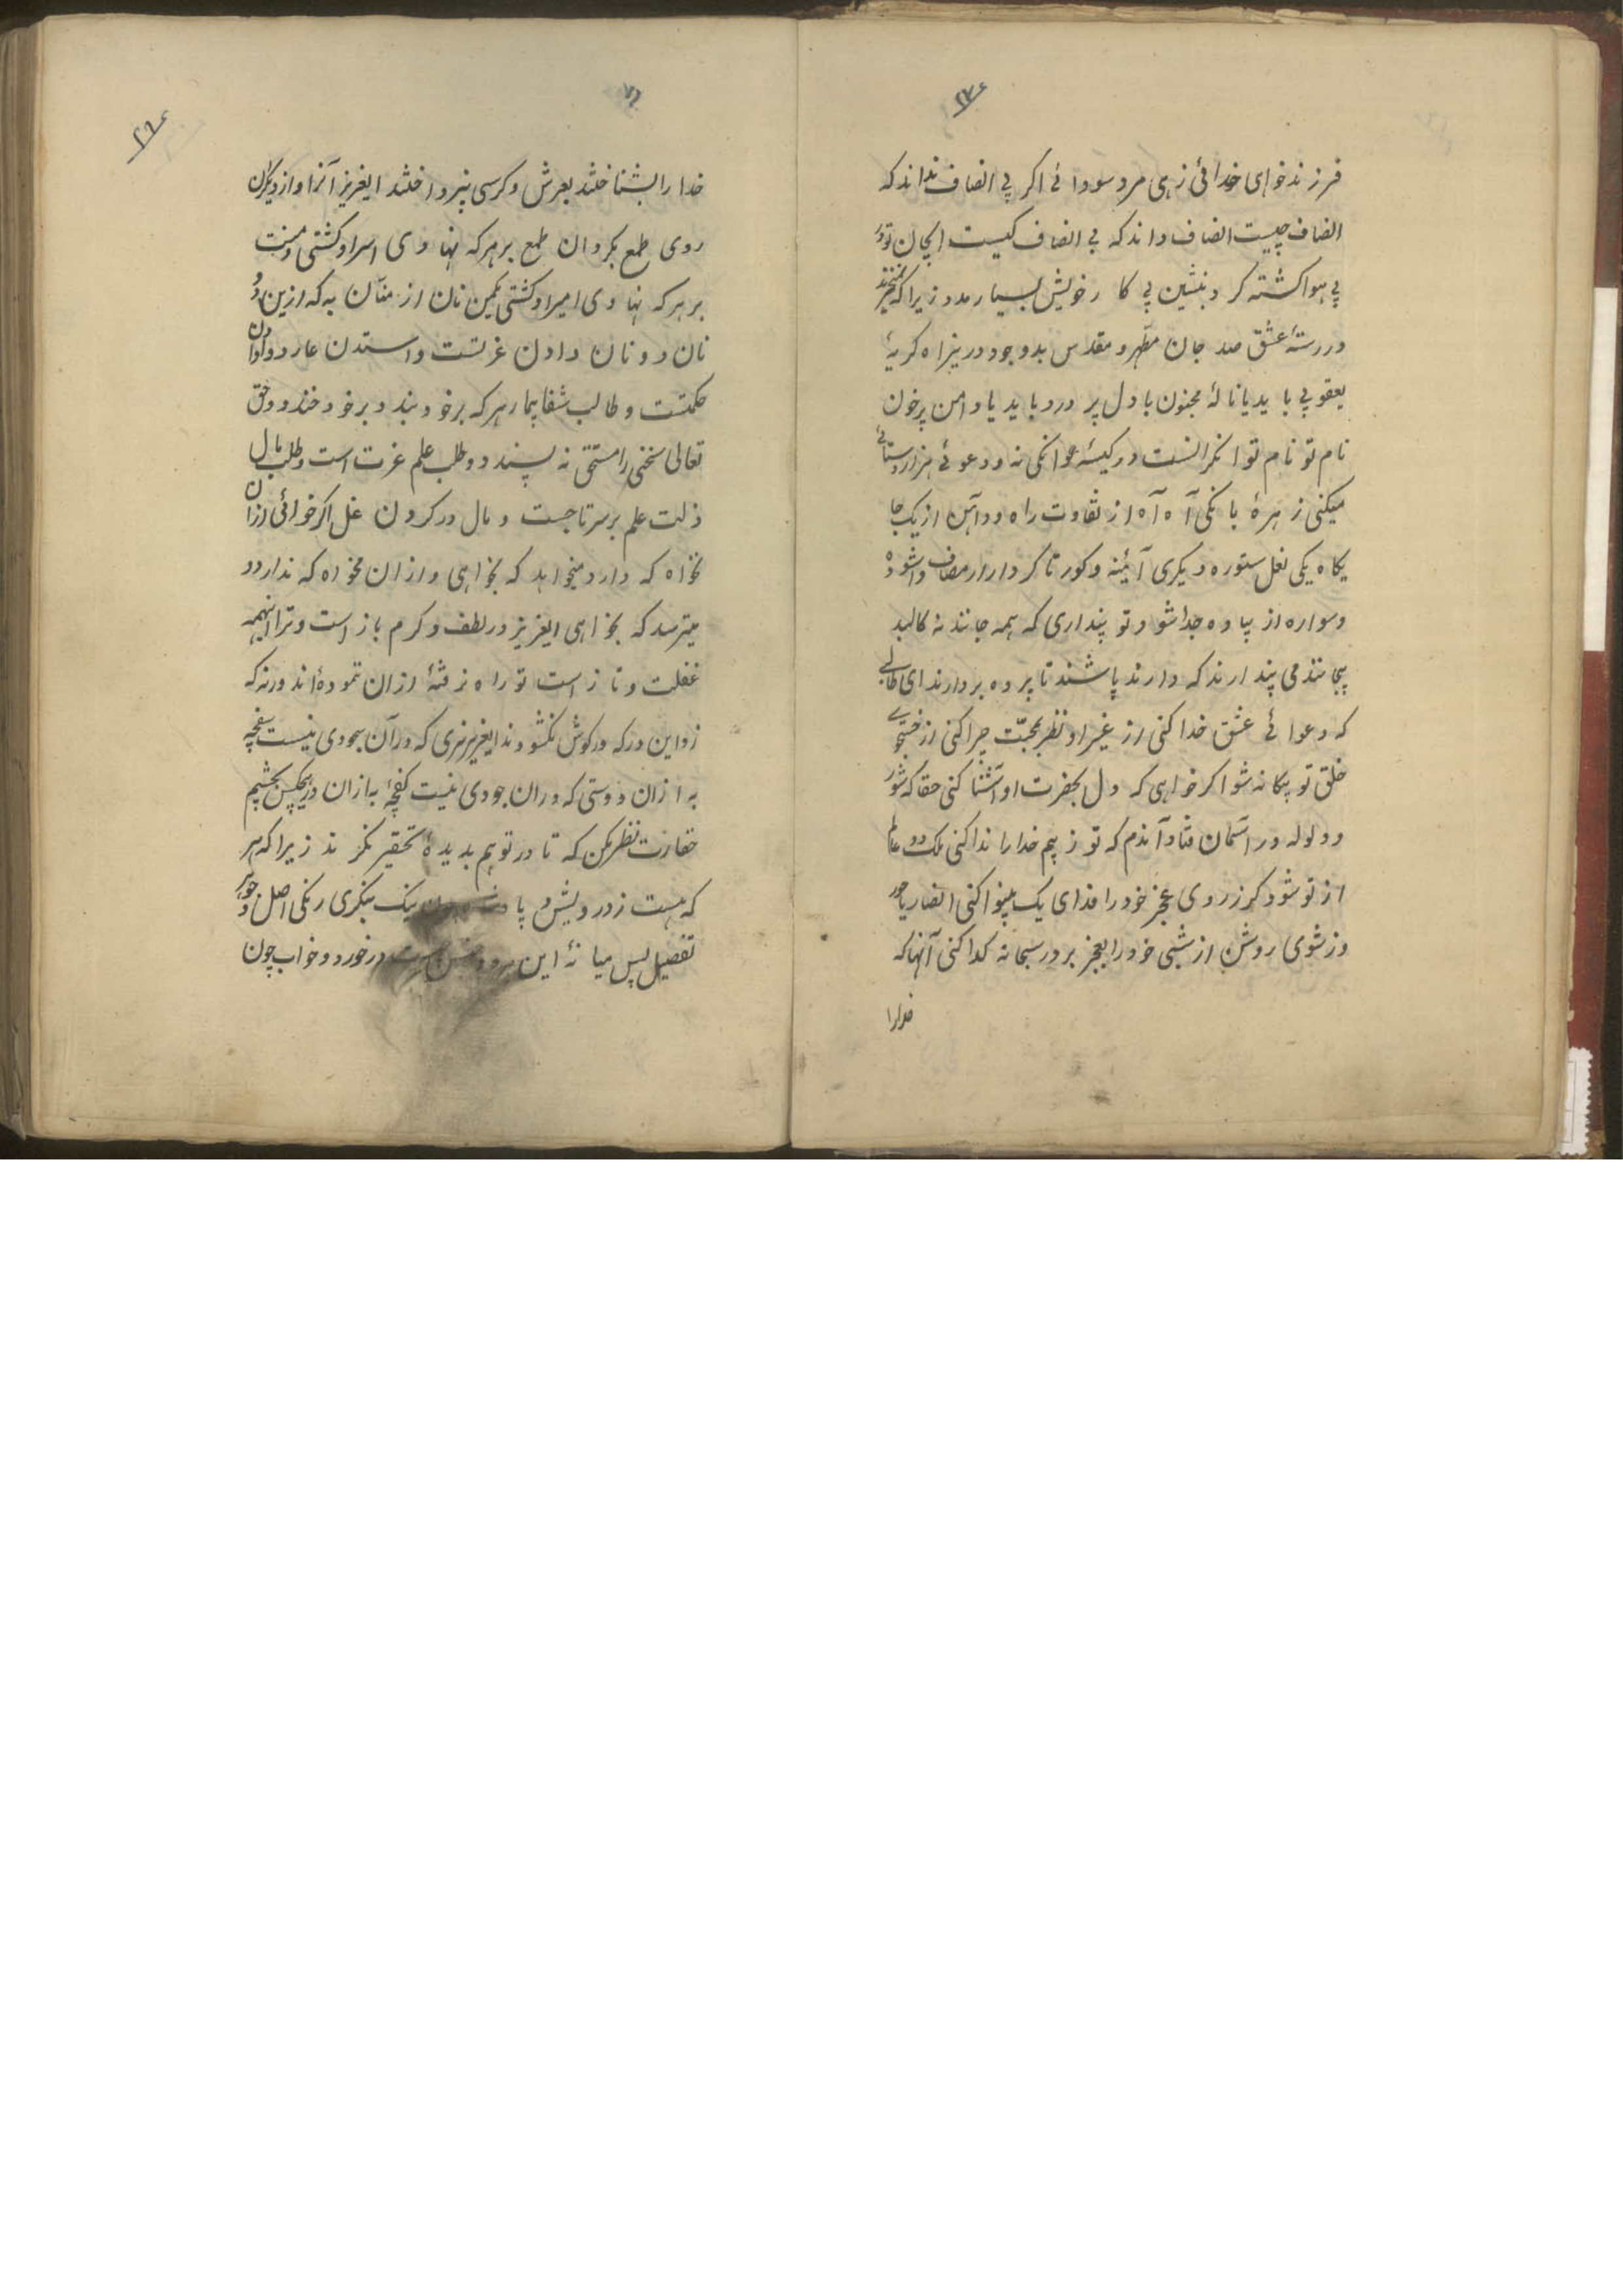 فرزند خواهی خدائی زهی مرد سودائے اگر بی انصاف نداند که
انصاف چیست انصاف داند که بی انصاف کیست ایجان تو
بی هوا گشته گرد بنشین بی کار خویش بسیار مدو زیرا که
در رستهٔ عشق صد جان مطهر و مقدس بدو جو در نیز اه گریهٔ
یعقوبی باید یا نالهٔ مجنون با دل پر درد باید یا دامن پرخون
نام تو نام توانگرانست در کیسهٔ عوانکی نه و دعوئے هزار
میکنی زهرهٔ بانکی آه آه از تفاوت راه دو آهن از یک جا
یکاه یکی نعل ستور و دیگری آئینه و کور تا کردار از مصاف وا شود
و سواره از پیاده جدا شود تو پنداری که همه جانند نه کالبد
بیجانند می پندارند که دارند باشند تا پرده بردارند ای طالبی
که دعوائے عشق خدا کنی از غیر او نظر بمحبّت چرا کنی از
خلق تو بیکانه شو اگر خواهی که دل بحضرت او آشنا کنی حقا که شور
و ولوله در آسمان فتاد آندم که تو ز بیم خدا را ندا کنی ملک دو عالم
از تو شود گر ز روی عجز خود را فدای یک بینوا کنی انصاریا چو
روز شوی روشن از شبی خود را بعجز بر در سبحانه گدا کنی آنها که
خدا را
خدا را بشناختند بعرش و کرسی نپرداختند ایعزیز آنرا و از دیگران
روی طمع بگردان طمع بر هر که نهادی اسیر او گشتی و منت
بر هر که نهادی امیر او گشتی یکمن نان از منّان به که ازین و
نان دونان دادن عزتست و استدن عار دو
حکمتست و طالب شفا بیمار هر که بر خود بندد بر خود خندد و حق
تعالی سختی را مستحق نه پسندد و طلب علم عزت است و طلب مال
ذلت علم بر سر تاجست و مال در گردن غل اگر خواهی از آن
بخواه که دارد میخواهد که بخواهی و از آن مخواه که ندارد و
میترسد که بخواهی ایعزیز در لطف و کرم باز است و ترا اینهمه
غفلت و ناز است تو راه نرفتهٔ از آن ننموده‌اند ورنه که
زد این در که در گوش نکشودند ایعزیز سری که در آن سجودی نیست سفچه
به از آن و دستی که در آن جودی نیست کفچهٔ به از آن در هیچکس بچشم
حقارت نظر مکن که تا در تو هم بدیدهٔ تحقیر ننگرند زیرا که هر
که هست ز درویش و پا نیک بنگری رنگی اصل و
تفصیل پس میانهٔ این هر دو در خورد و خواب چون